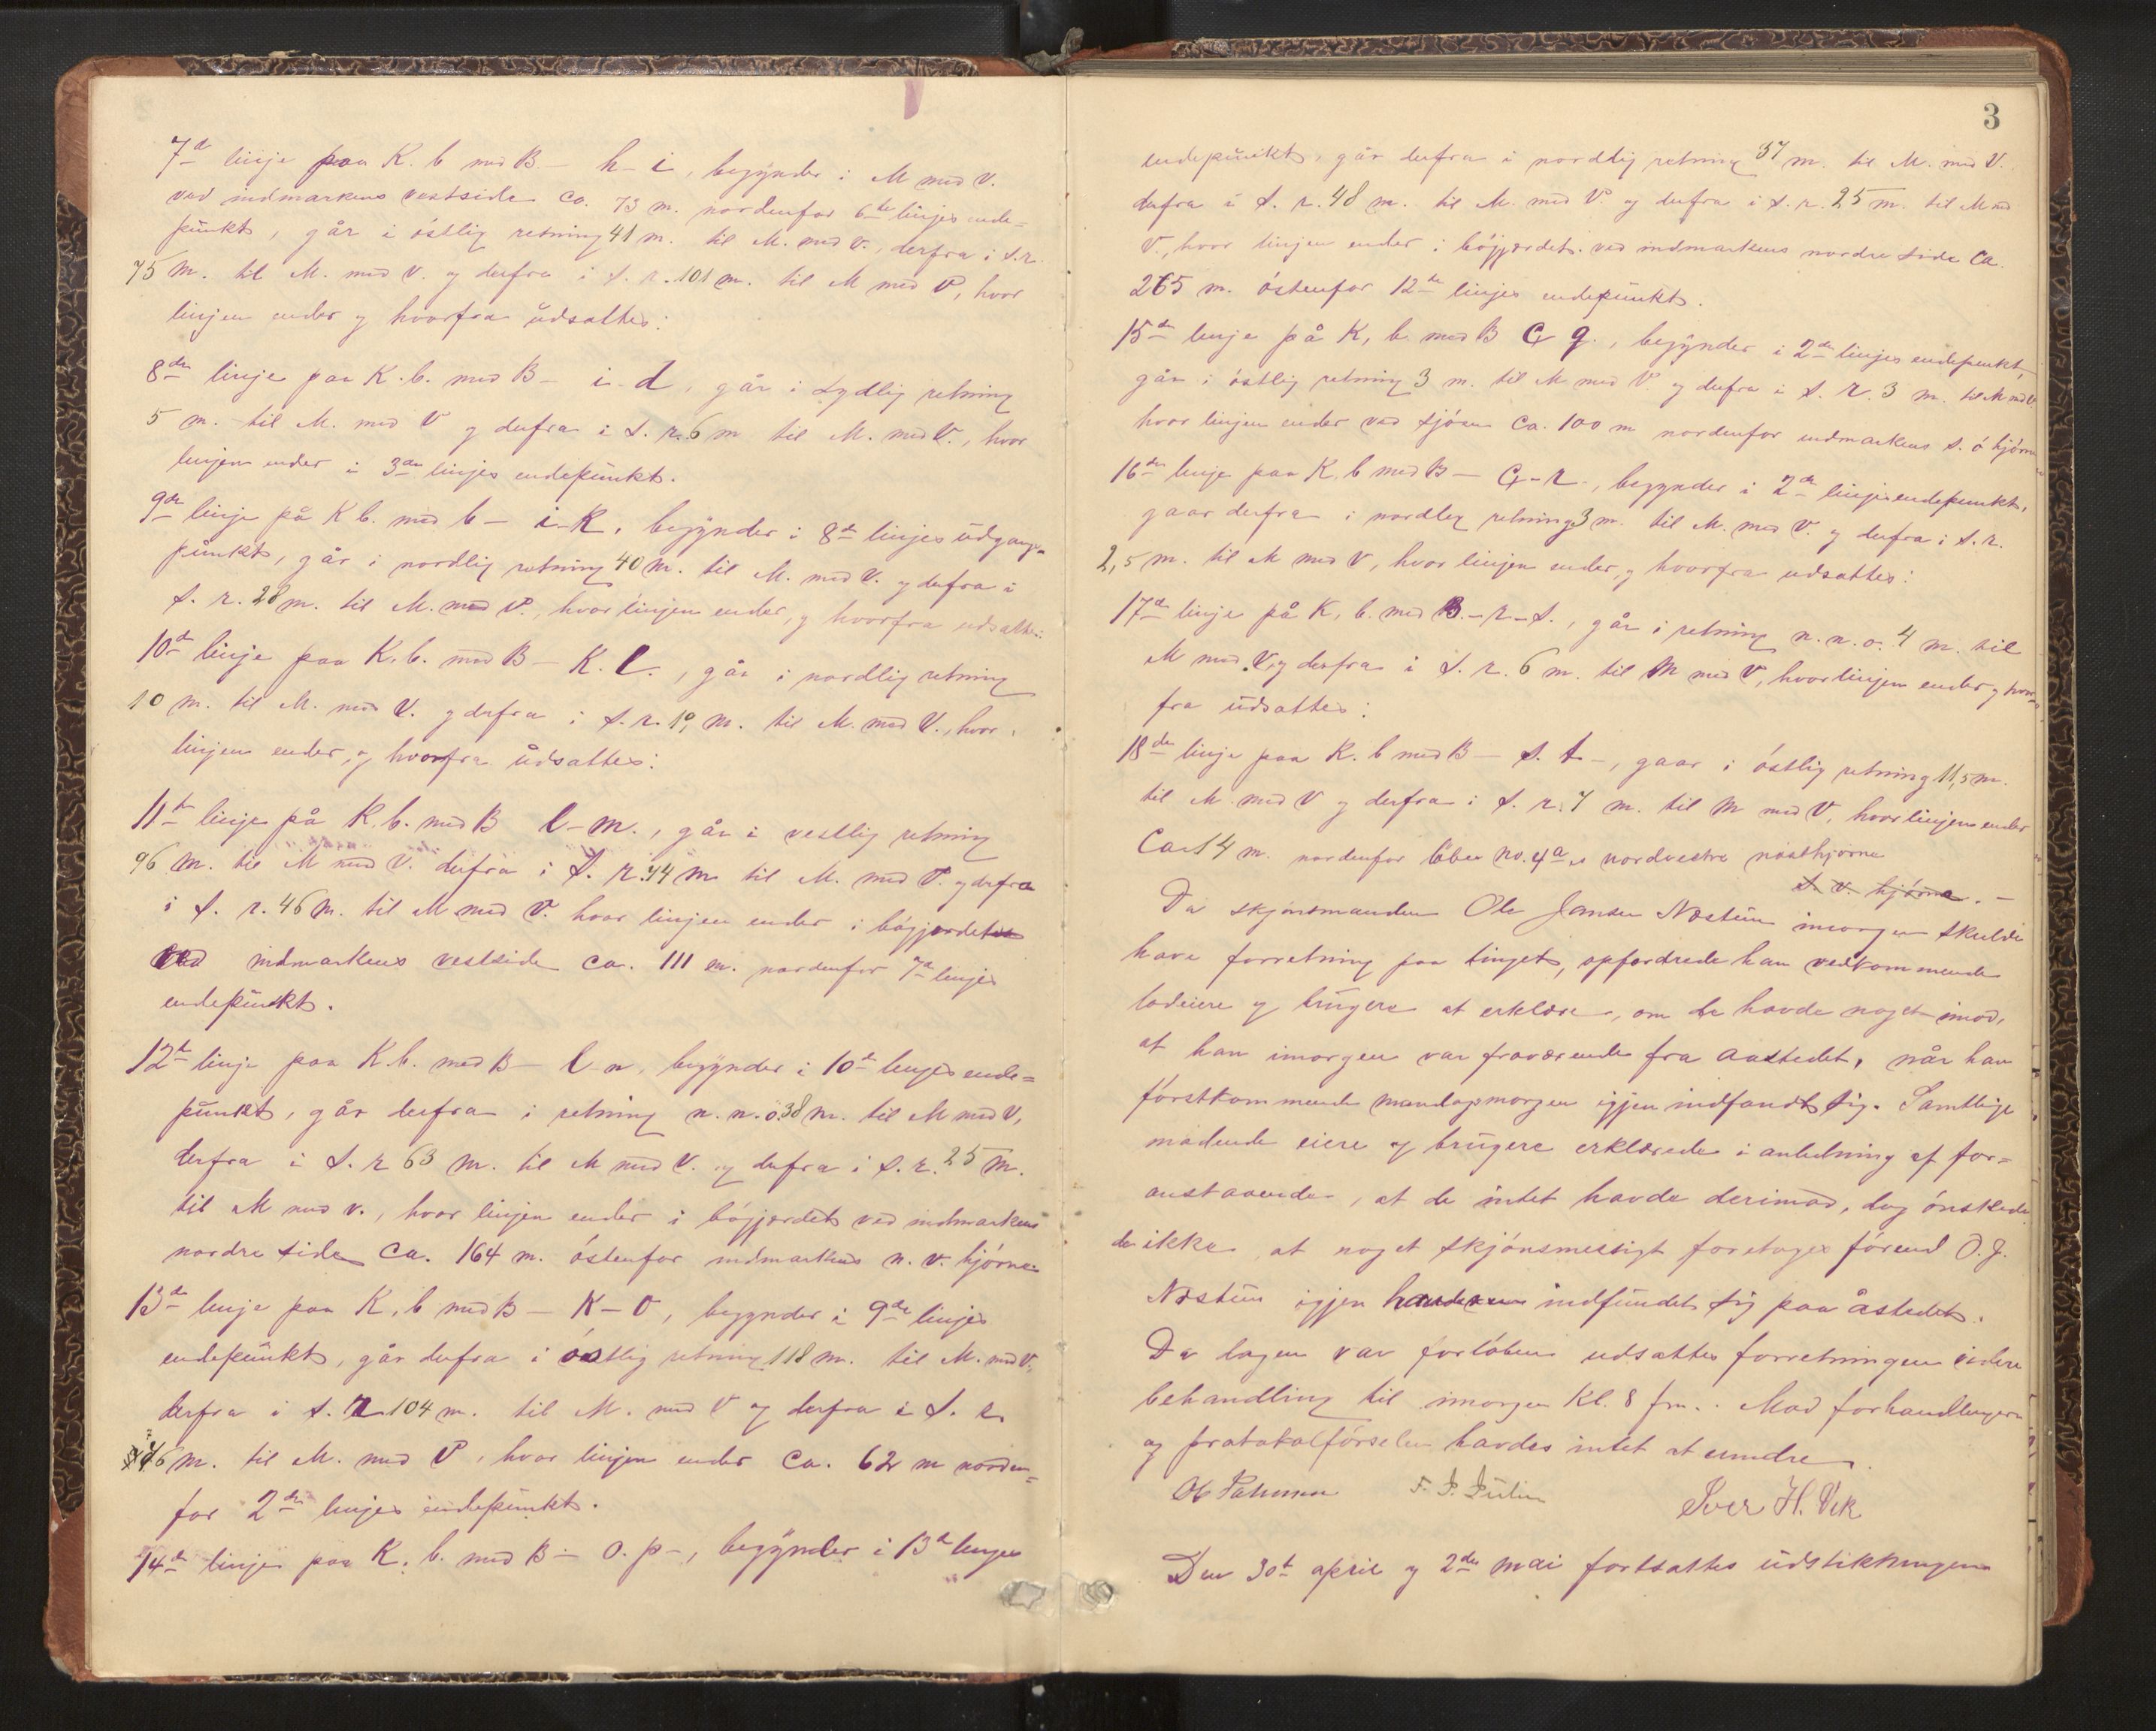 7de linje paa K. b med B - h - i, begÿnder i M med V.
ved indmarkens vestside ca. 73 m. nordenfor 6te linjes ende-
pünkt, går i östlig retning 41 m. til M. med V., derfra i s. r.
75 m. til M. med V. og derfra i s. r. 101 m. til M med V, hvor
linjen ender og hvorfra üdsattes:
8de linje paa K. b. med B - i - d, går i sydlig retning
5 m. til M. med V og derfra i s. r. 6 m til M. med V., hvor
linjen ender i 3die linjes endepünkt.
9de linje på K b. med b - i - K, begÿnder i 8de linjes üdgangs-
pünkt, går i nordlig retning 40 m. til M. med V. og derfra i
s. r. 28 m. til M. med V., hvor linjen ender, og hvorfra udsattes:
10de linje paa K. b. med B - K. l., går i nordlig retning
10 m. til M. med V. og derfra i s. r. 19 m. til M. med V., hvor
linjen ender, og hvorfra üdsattes:
11te linje på K. b. med B l - m., går i vestlig retning
96 m. til M med V. derfra i s. r. 74 m til M. med V. og derfra
i s. r. 46 m. til M med V. hvor linjen ender i bögjerdet
ved indmarkens vestside ca. 111 m. nordenfor 7de linjes
endepünkt.
12te linje paa K. b. med B - l - n, begÿnder i 10de linjes ende=
pünkt, går derfra i retning n. n. ö. 38 m. til M med V,
derfra i s. r 63 m. til M med V. og derfra i s. r. 25 m.
til M med V., hvor linjen ender i bögjerdet ved indmarkens
nordre side ca. 164 m. östenfor indmarkens n. v. hjörne
13de linje paa K. b med B - K - O, begynder i 9de linjes
endepünkt, går derfra i östlig retning 118 m. til M. med V.
derfra i s. r 104 m. til M. med V og derfra i s. r.
76 m. til M. med V, hvor linjen ender ca. 62 m norden=
for 2den linjes endepünkt.
14de linje paa K. b. med B - O. p -, begÿnder i 13de linjes
3
endepünkt, går derfra i nordlig retning 37 m. til M. med V.
derfra i s. r. 48 m. til M. med V og derfra i s. r. 25 m. til M med
V., hvor linjen ender i bögjerdet ved indmarkens nordre side ca.
265 m. östenfor 12te linjes endepünkt.
15de linje på K, b. med B C q., begÿnder i 2den linjes endepunkt,
går i östlig retning 3 m. til M med V og derfra i s. r. 3 m. til M med V.
hvor linjen ender ved sjöen ca. 100 m nordenfor indmarkens s. ö hjörne
16de linje paa K. b med B - C - r -, begynder i 2den linjes endepunkt,
gaar derfra i nordlig retning 3 m. til M. med V. og derfra i s. r.
2,5 m. til M med V, hvor linjen ender, og hvorfra udsattes:
17de linje på K, b. med B. - r - s., går i retning n. n. o. 4 m. til
M med V, og derfra i s. r. 6 m. til M med V, hvor linjen ender og hvor-
fra üdsattes:
18de linje paa K. b med B - s. t -, gaar i östlig retning 11,5 m.
til M med V og derfra i s. r. 7 m. til M med V, hvor linjen ender
ca 14 m. nordenfor löbe no. 4a,s nordvestre nösthjörne
s. v. hjörne. -
Da skjönsmanden Ole Jansen Næstün imorgen skulde
have forretning paa tinget, opfordrede han vedkommende
lodeiere og brügere at erklære, om de havde noget imod,
at han imorgen var fraværende fra aastedet, når han
förstkommende mandagsmorgen igjen indfandt sig. Samtlige
mödende eiere og brügere erklærede i anledning af for=
anstaaende, at de intet havde derimod, dog önskede
de ikke, at noget skjönsmessigt foretages förend O. J.
Næstün igjen indfündet sig paa åstedet.
Da dagen var forlöben udsattes forretningens videre
behandling til imorgen Kl. 8 fm. Mod forhandlingen
og protokolförselen havdes intet at erindre.
Iver H. Vik
Den 30te april og 2den mai fortsattes üdstikkningen